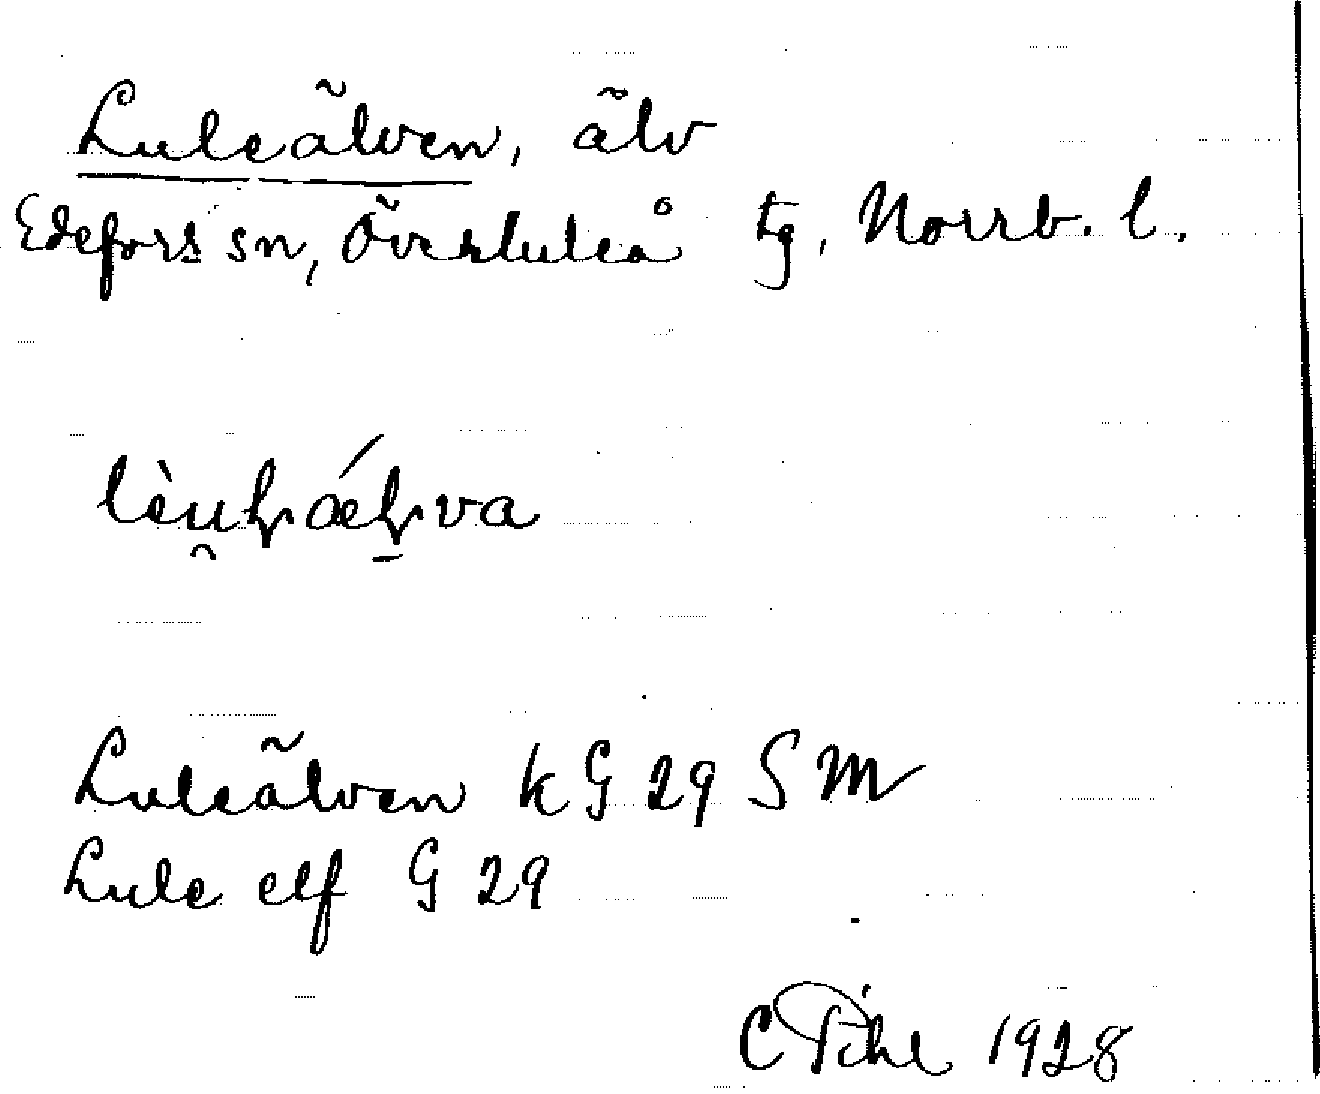 Luleälven, älv
Edefors sn, Överluleå tg, Norrb. l.
Luleälven kG 29 SM
Lule elf G 29
C Pihl 1928